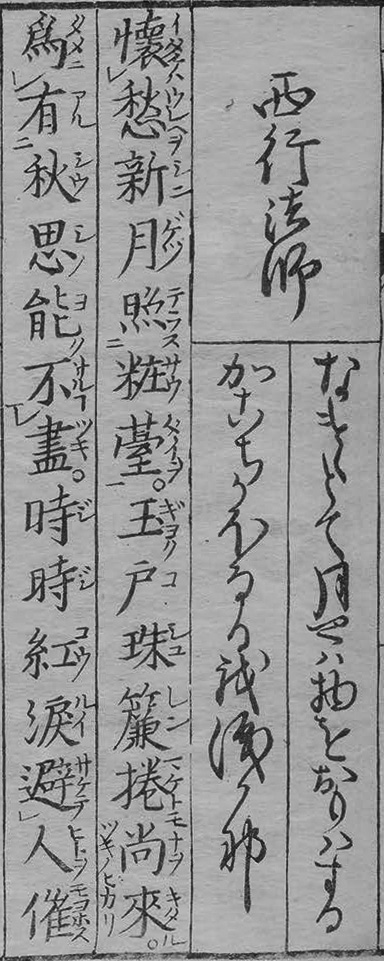 西行法師
なけけとて月やハ物をおもハする
かこちかほなる我涙か那
懷愁新月照粧薹。玉戸珠簾捲尚來。
爲有秋思能不盡。時時紅淚避人催